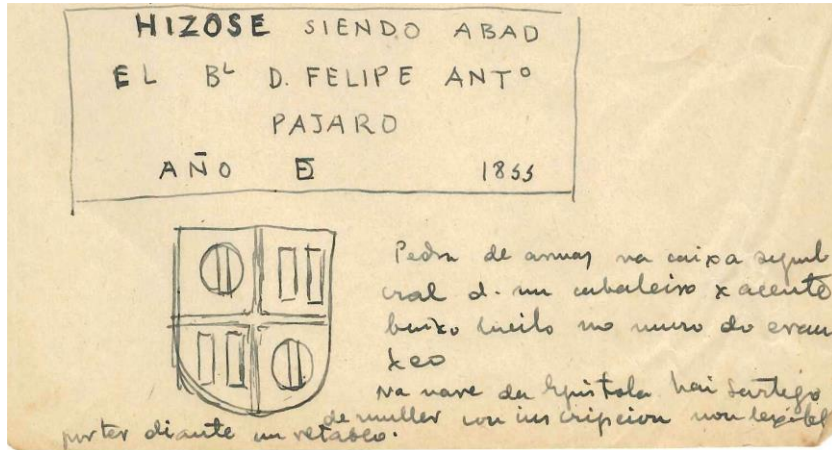 HIZOSE SIENDO ABAD
EL Bᴸ D. FELIPE ANTº
PAJARO
AÑO DE 1855
Pedra de armas na caixa sepul
cral d. un cabaleiro xacente
baixo lucilo no muro do evan
xeo
Na nave da Epistola hai sartego
de muller con inscripcion non lexible
por ter diante un retablo.